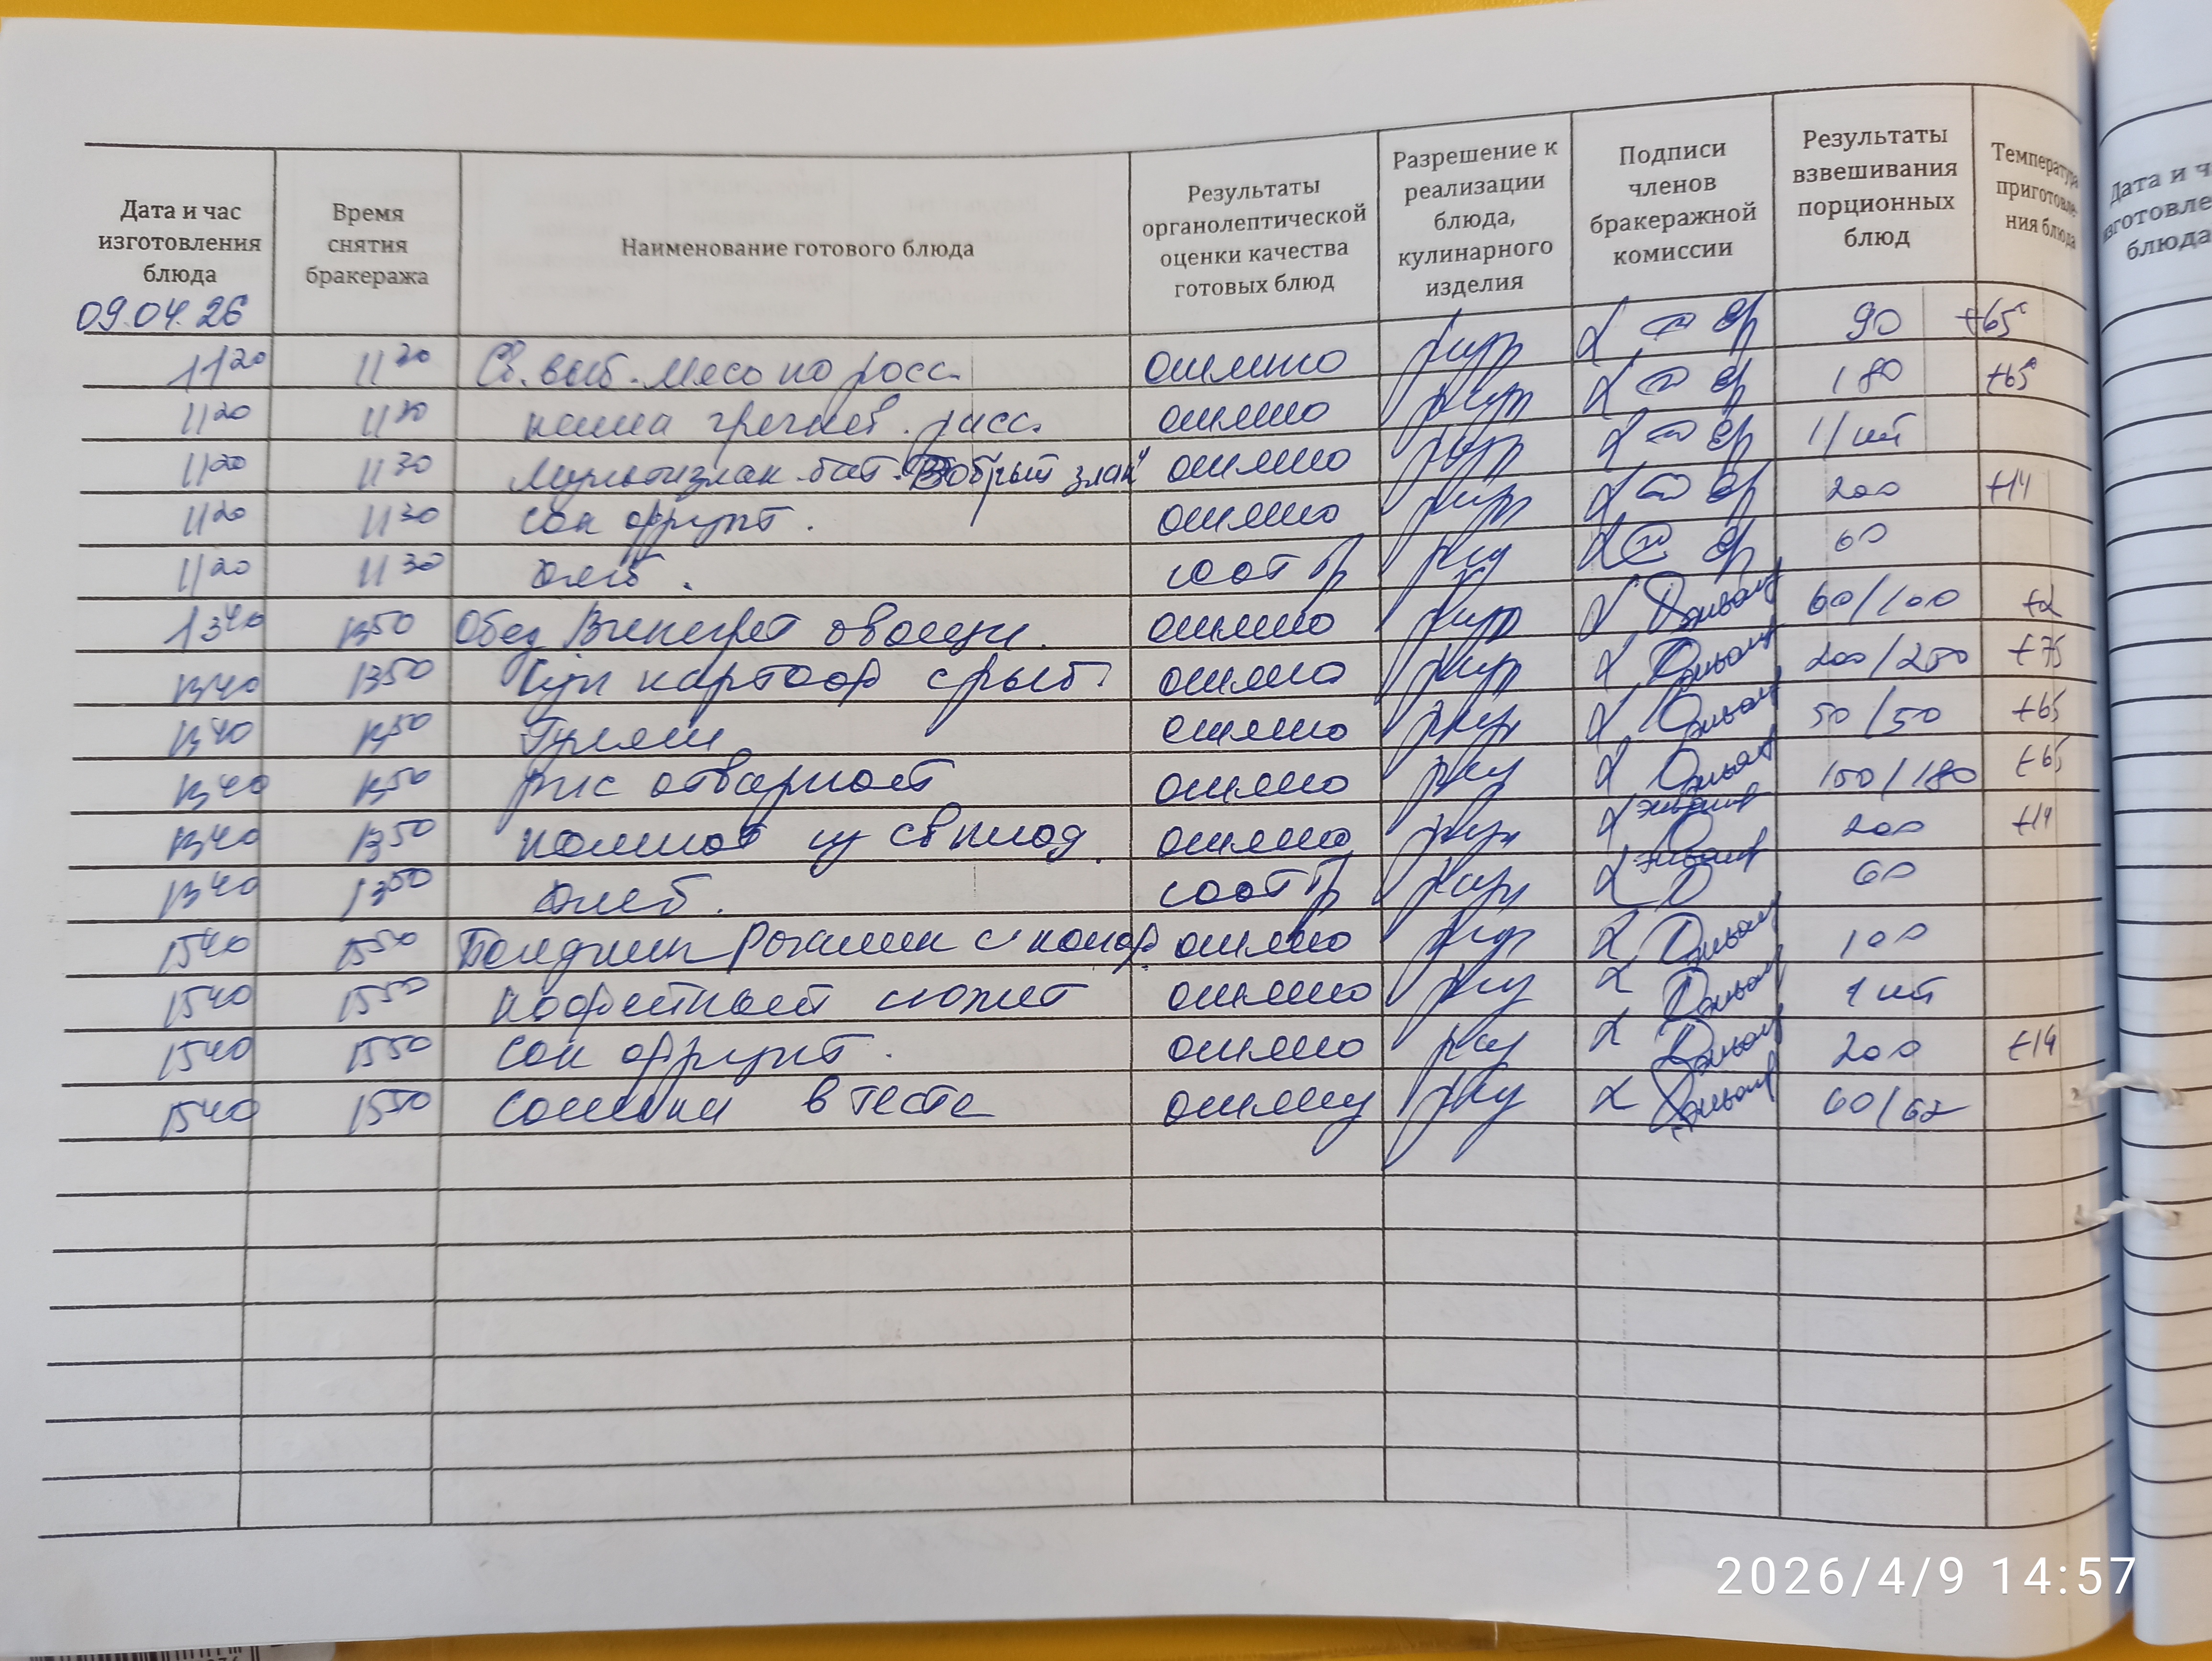 Дата и час изготовления блюда
Время снятия бракеража
Наименование готового блюда
Результаты органолептической оценки качества готовых блюд
Разрешение к реализации блюда, кулинарного изделия
Подписи членов бракеражной комиссии
Результаты взвешивания порционных блюд
Температура приготовления блюда
09.04.26
11 20 11 30 Св. выб. Мясо по росс. отлично 90 +65°
11 20 11 30 каша гречнев. расс. отлично 180 +65°
11 20 11 30 Мультизлак. бат. "Добрый злак" отлично 1/шт
11 20 11 30 Сок фрукт. отлично 200 +14
11 20 11 30 хлеб. соот тр 60
13 40 13 50 Обед Винегрет овощн. отлично 60/100 +2
13 40 13 50 Суп картоф с рыб. отлично 200/250 +75
13 40 13 50 Гуляш отлично 50/50 +65
13 40 13 50 рис отварной отлично 150/180 +65
13 40 13 50 компот из св плод. отлично 200 +14
13 40 13 50 хлеб. соот тр 60
15 40 15 50 Полдник Рогалик с отлично 100
15 40 15 50 отлично 1 шт
15 40 15 50 Сок фрукт. отлично 200 +14
15 40 15 50 Сосиски в тесте отлично 60/62
Дата и ч
изготовле
блюда
2026/4/9 14:57